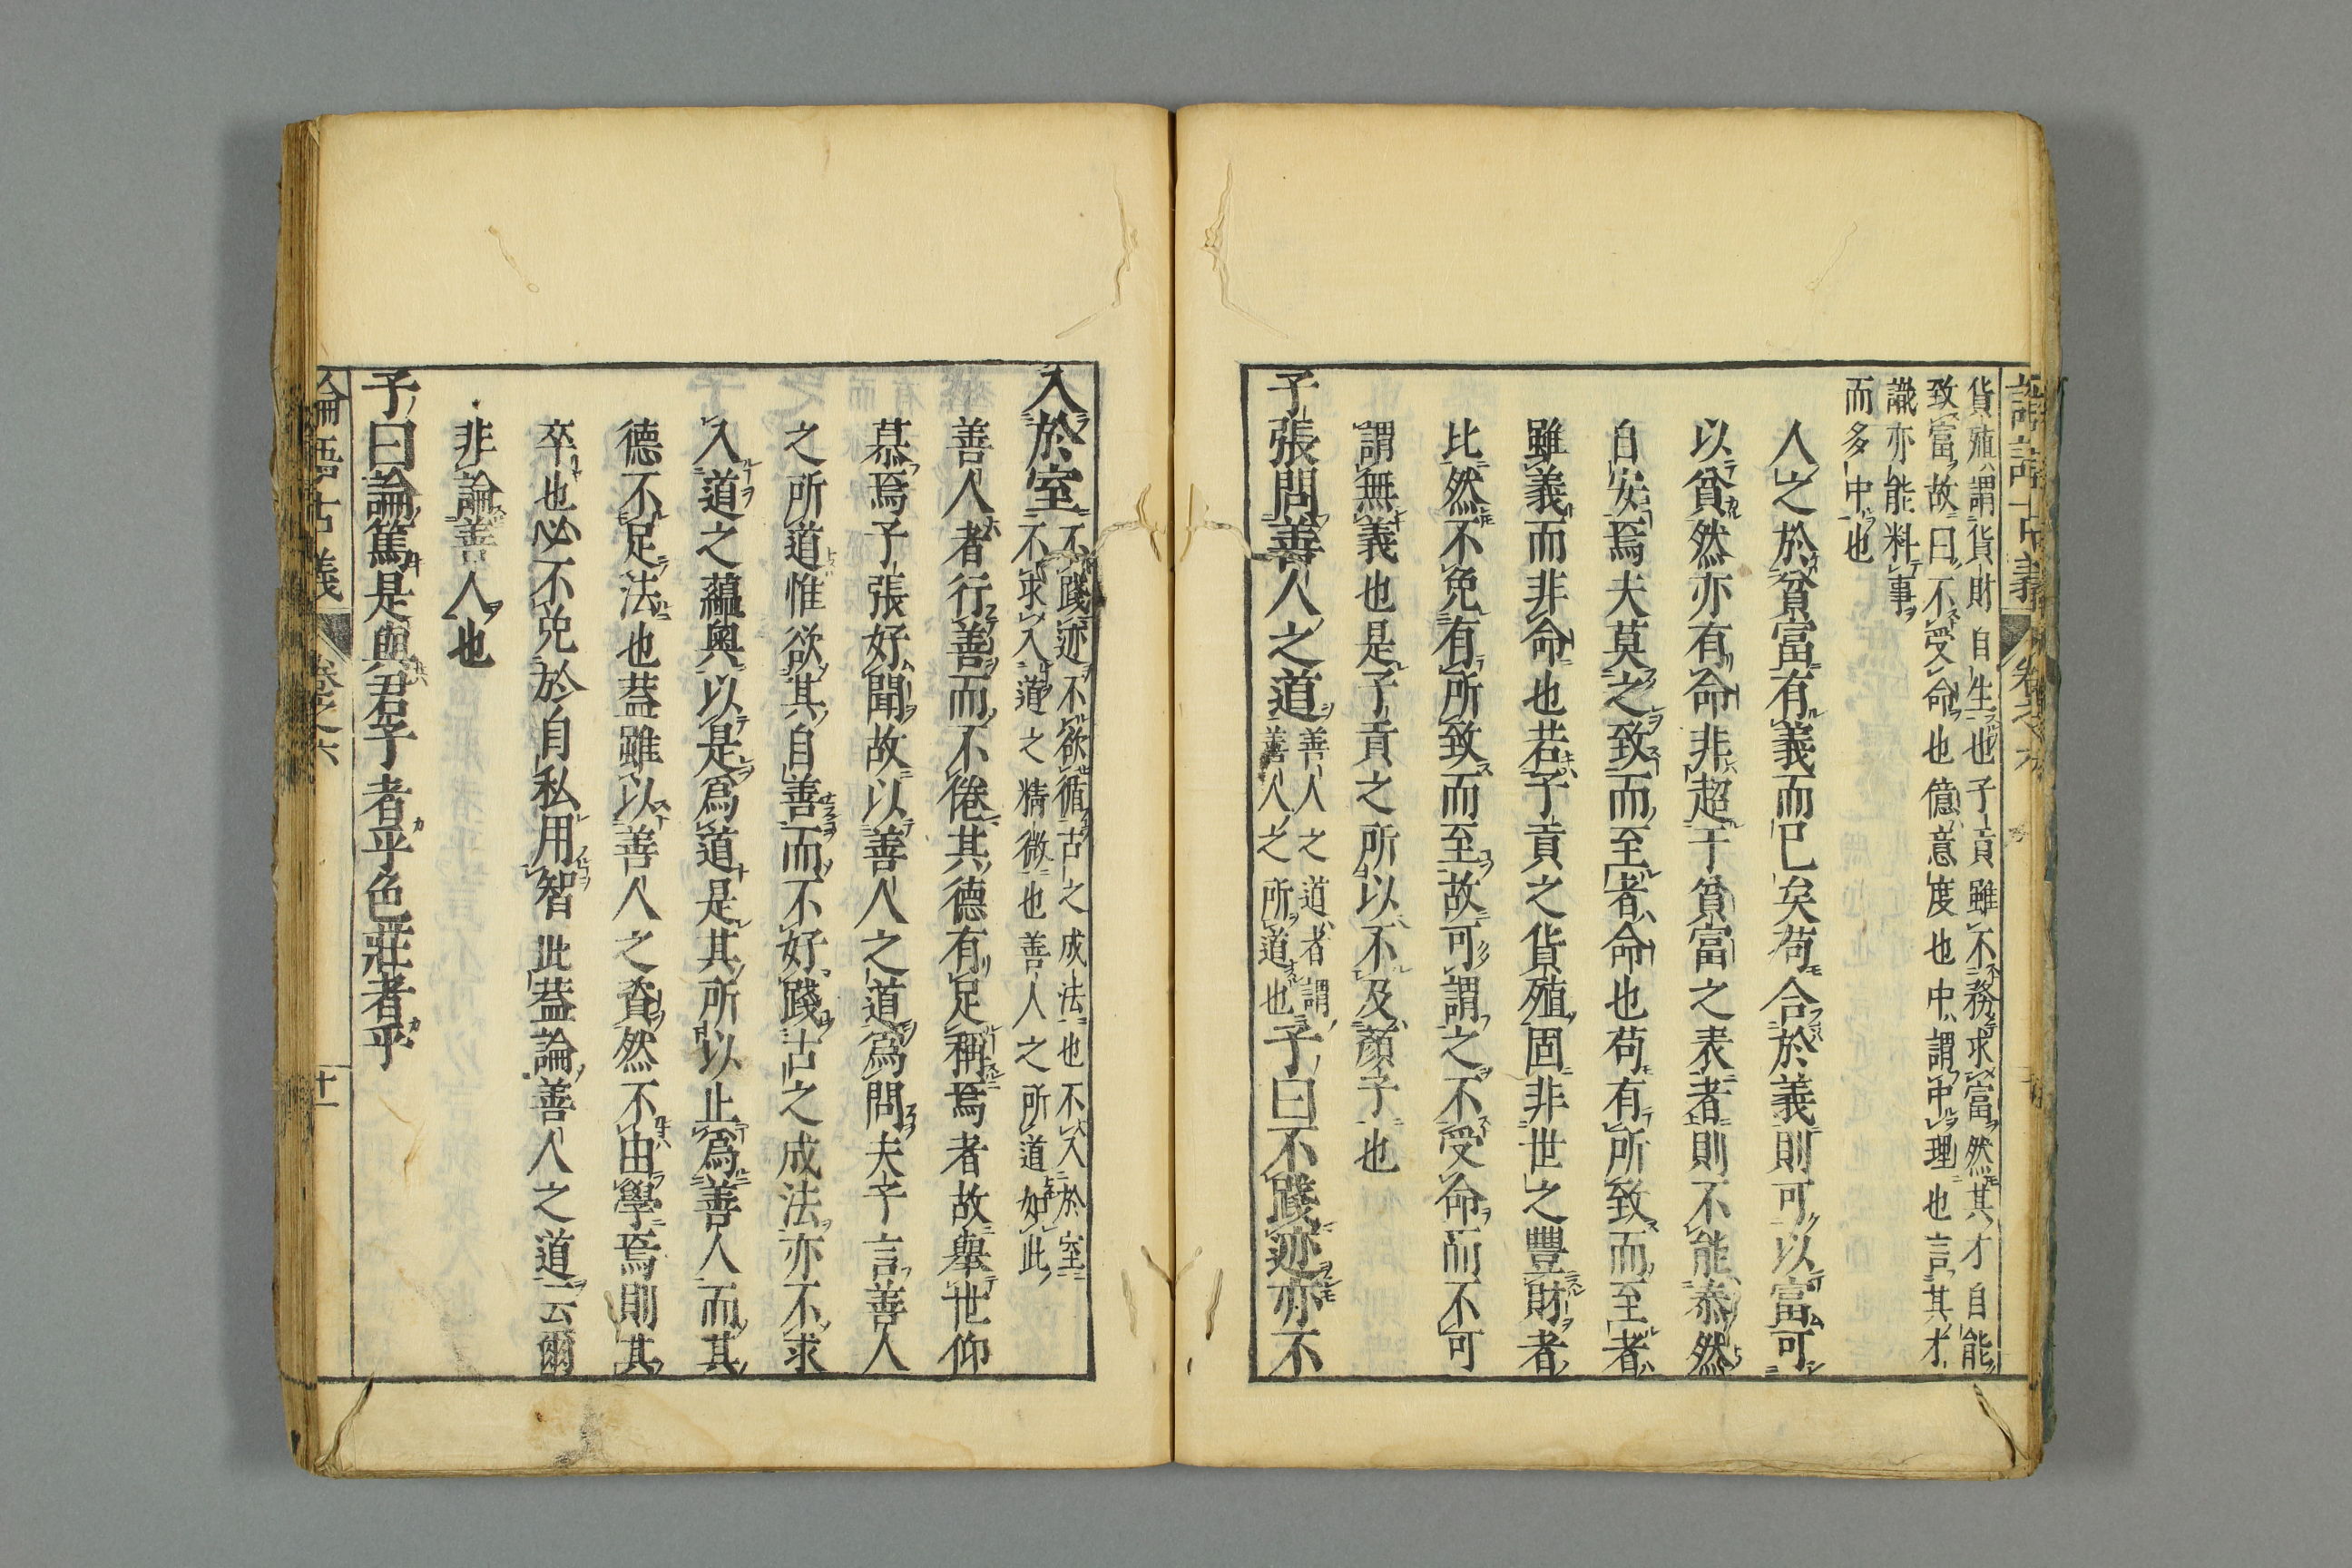 貨殖謂貨財自生也子貢雖不務求富然其才自能
致富故曰不受命也億意度也中謂中理也言其才
識亦能料事
而多中也
人之於貧富有義而已矣苟合於義則可以富可
以貧然亦有命非超于貧富之表者則不能泰然
自安焉夫莫之致而至者命也苟有所致而至者
雖義而非命也若子貢之貨殖固非世之豐財者
比然不免有所致而至故可謂之不受命而不可
謂無義也是子貢之所以不及顏子也
子張問善人之道善人之道者謂善人之所道也子曰不踐迹亦不
入於室不踐迹不欲循古之成法也不入於室不求入道之精微也善人之所道如此
善人者行善而不倦其德有足稱焉者故舉世仰
慕焉子張好聞故以善人之道爲問夫子言善人
之所道惟欲其自善而不好踐古之成法亦不求
入道之蘊奧以是爲道是其所以止爲善人而其
德不足法也葢雖以善人之資然不由學焉則其
卒也必不免於自私用智此葢論善人之道云爾
非論善人也
子曰論篤是與君子者乎色莊者乎
論語古義 卷之六 十一